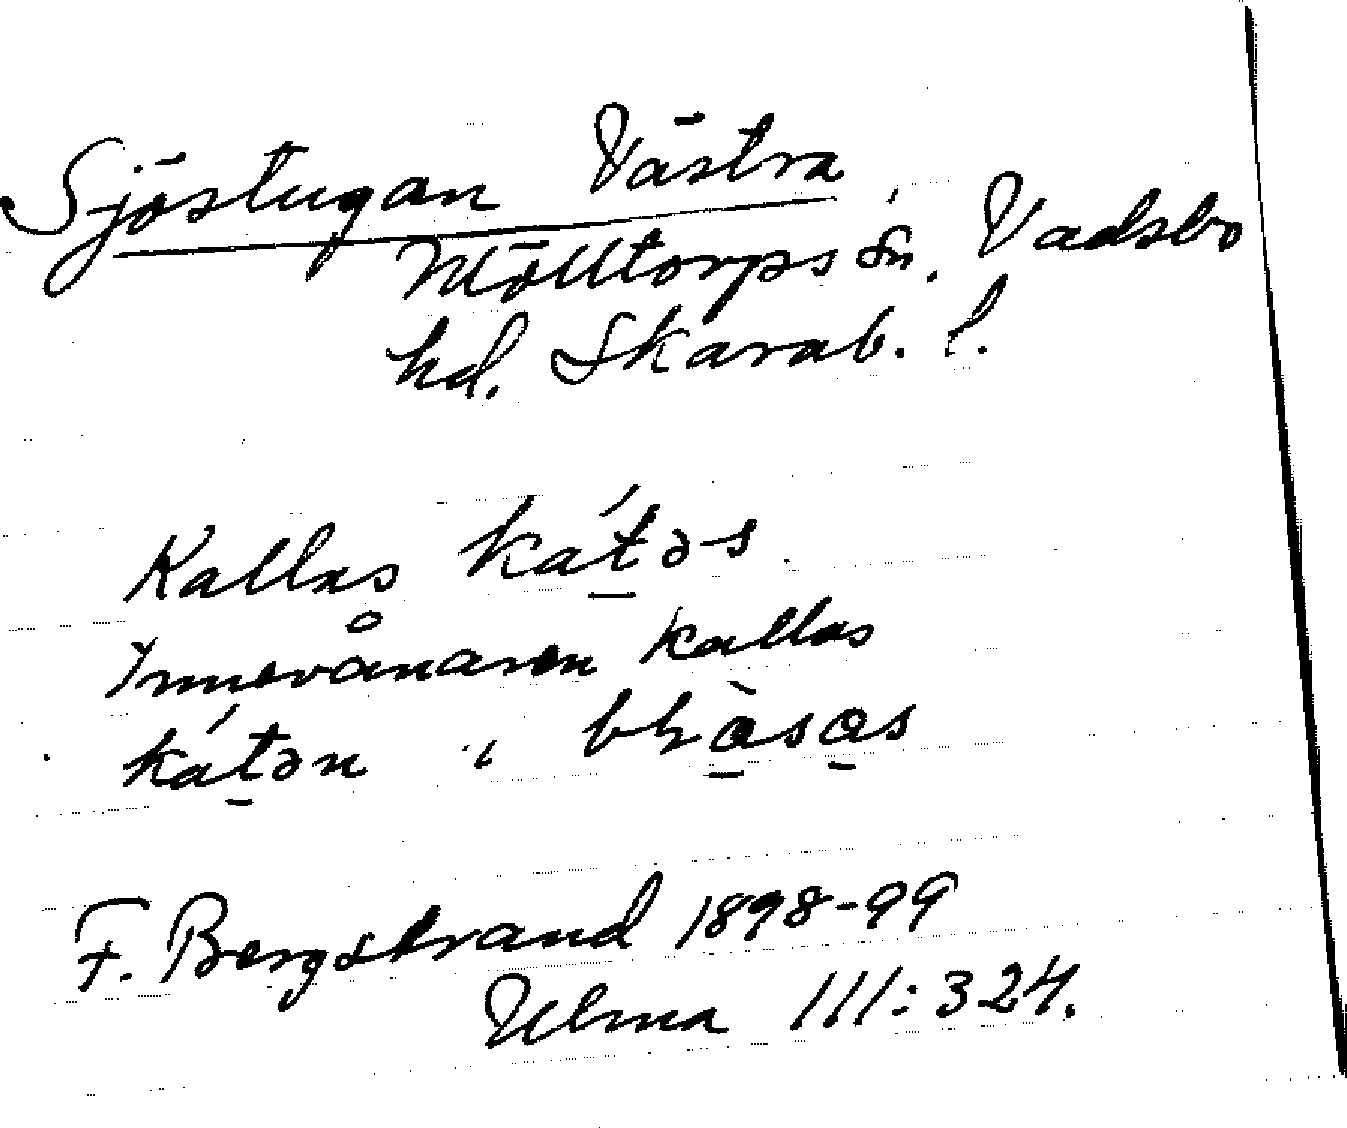 Sjöstugan Västra
Mölltorps sn. Vadsbo
hd. Skarab. l.
Kallas kát̠əs.
Innevånaren kallas
kát̠ən i
F. Bergstrand 1898-99
Ulma 111:324.